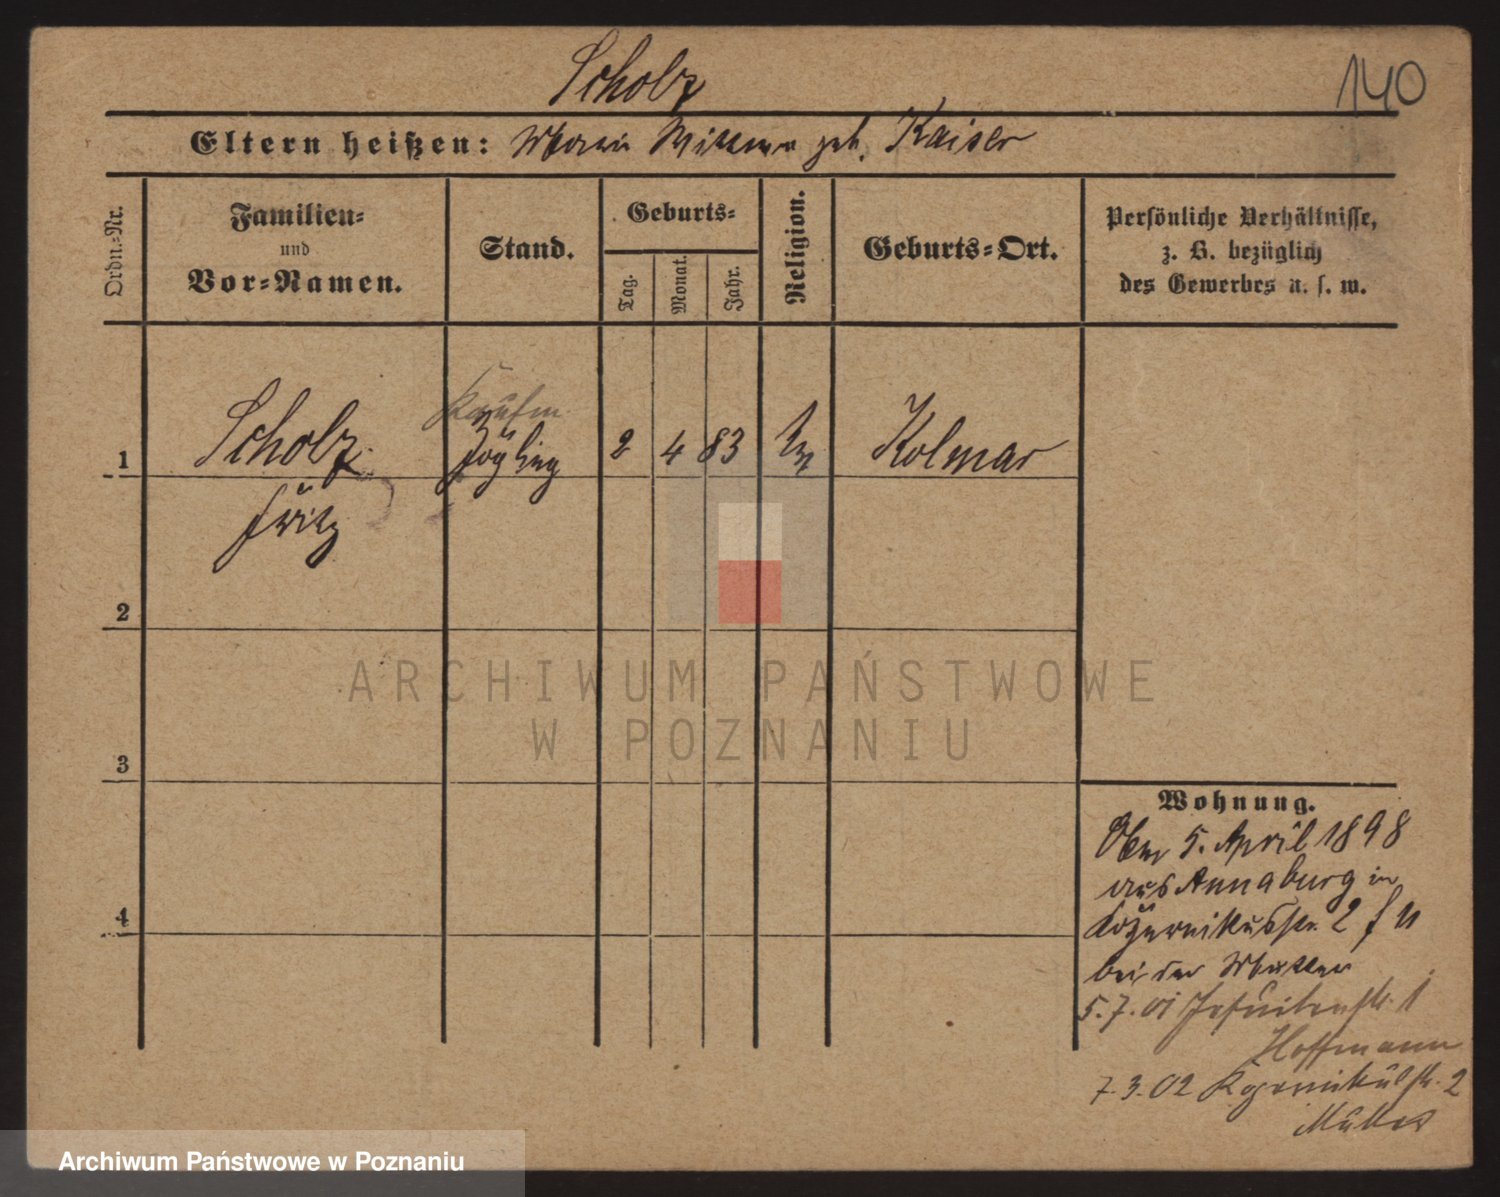 Scholz
140
Eltern heißen: Maria Wittwe geb. Kaiser
Ordn.=Nr.
Familien=
und
Vor=Namen.
Stand.
Geburts=
Tag.
Monat.
Jahr.
Religion.
Geburts=Ort.
Persönliche Verhältnisse,
z. B. bezüglich
des Gewerbes u. s. w.
Kaufm.
1 Scholz Zögling 2 4 83 Kolmar
Fritz
2
3
4
ARCHIWUM PAŃSTWOWE
W POZNANIU
Wohnung.
5. April 1898
aus Annaburg in
2
bei der Mutter
5.7.01 Jesuitenstr. 1
Hoffmann
7.3.02 2
Mutter
Archiwum Państwowe w Poznaniu